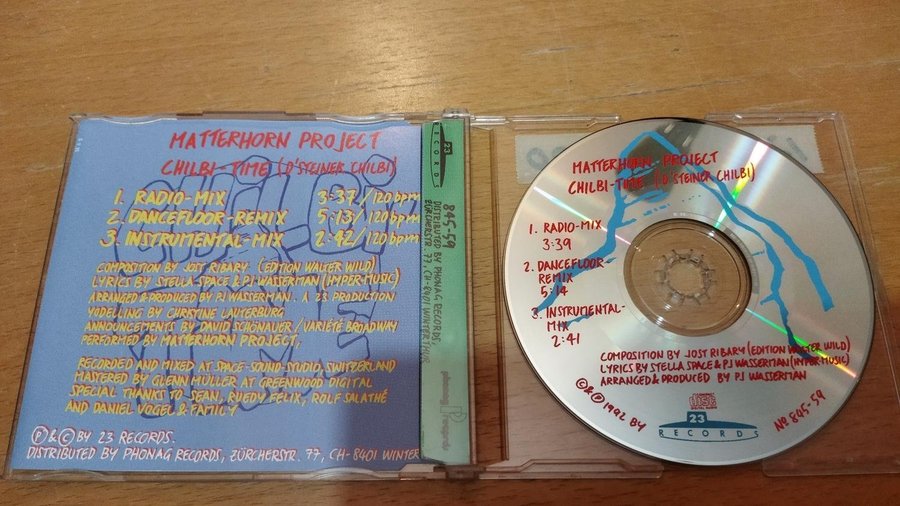 MATTERHORN PROJECT
CHILBI-TIME (D'STEINER CHILBI)
1. RADIO-MIX 3:37/120bpm
2. DANCEFLOOR-REMIX 5:13/120bpm
3. INSTRUMENTAL-MIX 2:42/120bpm
COMPOSITION BY JOST RIBARY (EDITION WALTER WILD)
LYRICS BY STELLA SPACE & PJ WASSERMAN (HYPER-MUSIC)
ARRANGED & PRODUCED BY PJ WASSERMAN. A 23 PRODUCTION
YODELLING BY CHRISTINE LAUTERBURG
ANNOUNCEMENTS BY DAVID SCHÖNAUER/VARIÉTÉ BROADWAY
PERFORMED BY MATTERHORN PROJECT,
RECORDED AND MIXED AT SPACE-SOUND-STUDIO, SWITZERLAND
MASTERED BY GLENN MÜLLER AT GREENWOOD DIGITAL
SPECIAL THANKS TO SEAN, RUEDY FELIX, ROLF SALATHÉ
AND DANIEL VOGEL & FAMILY
Ⓟ & © BY 23 RECORDS.
DISTRIBUTED BY PHONAG RECORDS, ZÜRCHERSTR. 77, CH-8401 WINTER
23
RECORDS
845-59
DISTRIBUTED BY PHONAG RECORDS,
ZÜRCHERSTR. 77, CH-8401 WINTERTHUR
phonag Records
MATTERHORN PROJECT
CHILBI-TIME (D'STEINER CHILBI)
1. RADIO-MIX
3:39
2. DANCEFLOOR-
REMIX
5:14
3. INSTRUMENTAL-
MIX
2:41
COMPOSITION BY JOST RIBARY (EDITION WALTER WILD)
LYRICS BY STELLA SPACE & PJ WASSERMAN (HYPER-MUSIC)
ARRANGED & PRODUCED BY PJ WASSERMAN
© & Ⓟ 1992 BY
COMPACT
disc
DIGITAL AUDIO
23
RECORDS
No 845-59